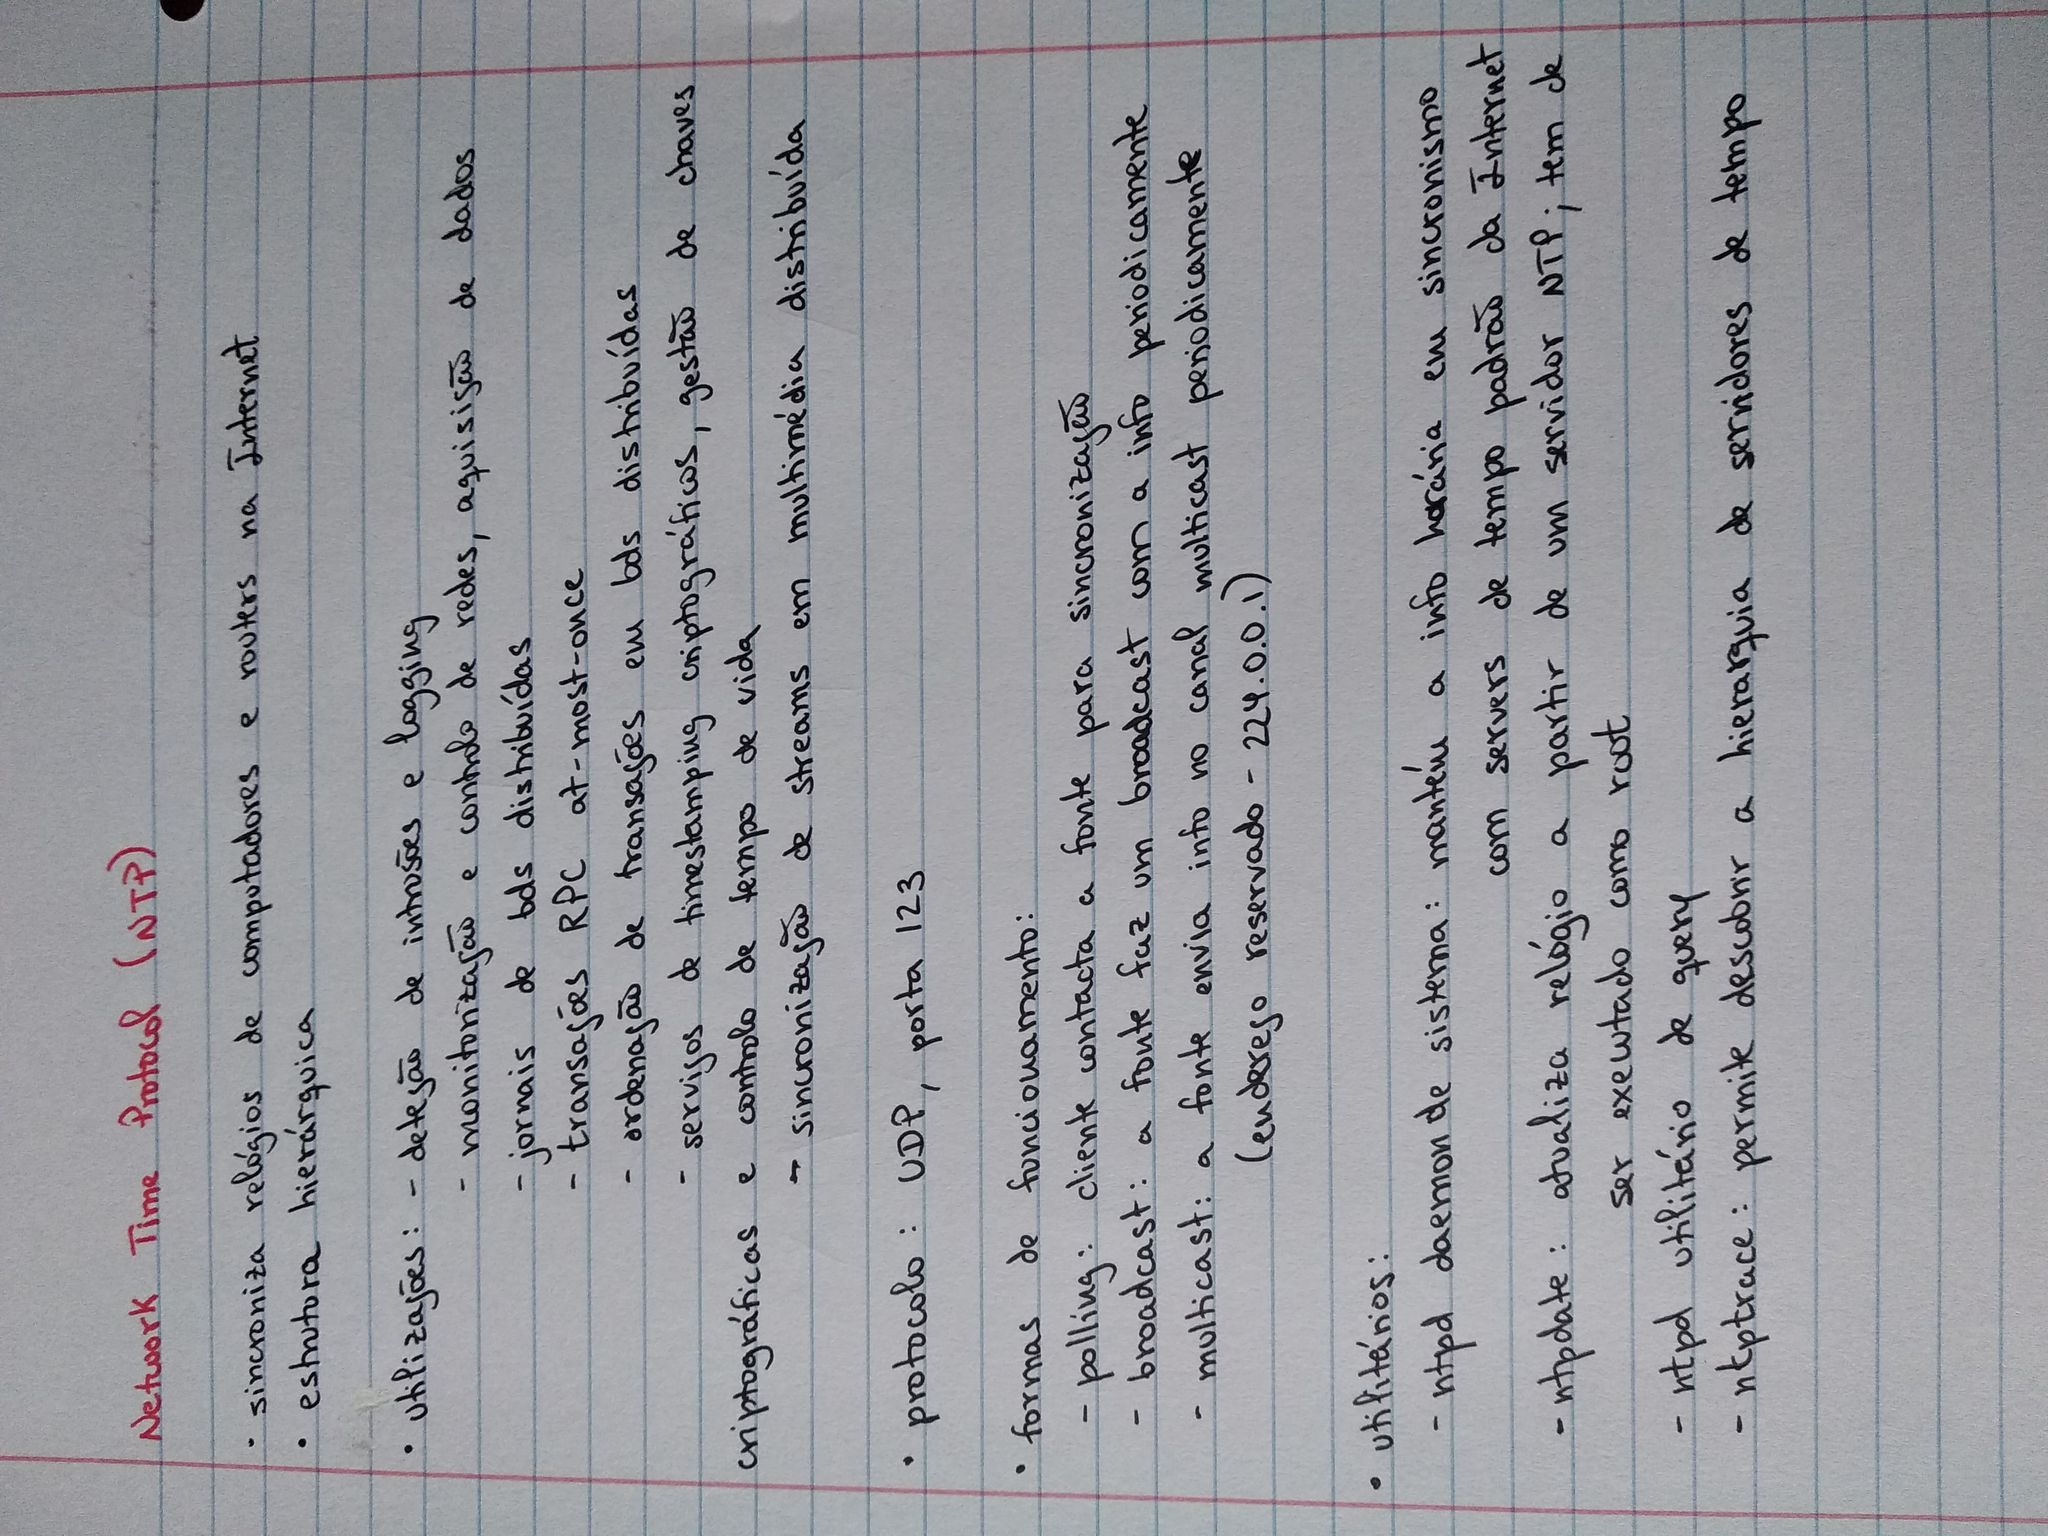 Network Time Protocol (NTP)
• sincroniza relógios de computadores e routers na Internet
• estrutura hierárquica
• utilizações: - deteção de intrusões e logging
- monitorização e controlo de redes, aquisição de dados
- jornais de bds distribuídas
- transações RPC at-most-once
- ordenação de transações em bds distribuídas
- serviços de timestamping criptográficos, gestão de chaves
criptográficas e controlo de tempo de vida
- sincronização de streams em multimédia distribuída
• protocolo: UDP, porta 123
• formas de funcionamento:
- polling: cliente contacta a fonte para sincronização
- broadcast: a fonte faz um broadcast com a info periodicamente
- multicast: a fonte envia info no canal multicast periodicamente
(endereço reservado - 224.0.0.1)
• utilitários:
- ntpd daemon de sistema: mantém a info horária em sincronismo
com servers de tempo padrão da Internet
- ntpdate: atualiza relógio a partir de um servidor NTP; tem de
ser executado como root
- ntpd utilitário de query
- ntptrace: permite descobrir a hierarquia de servidores de tempo